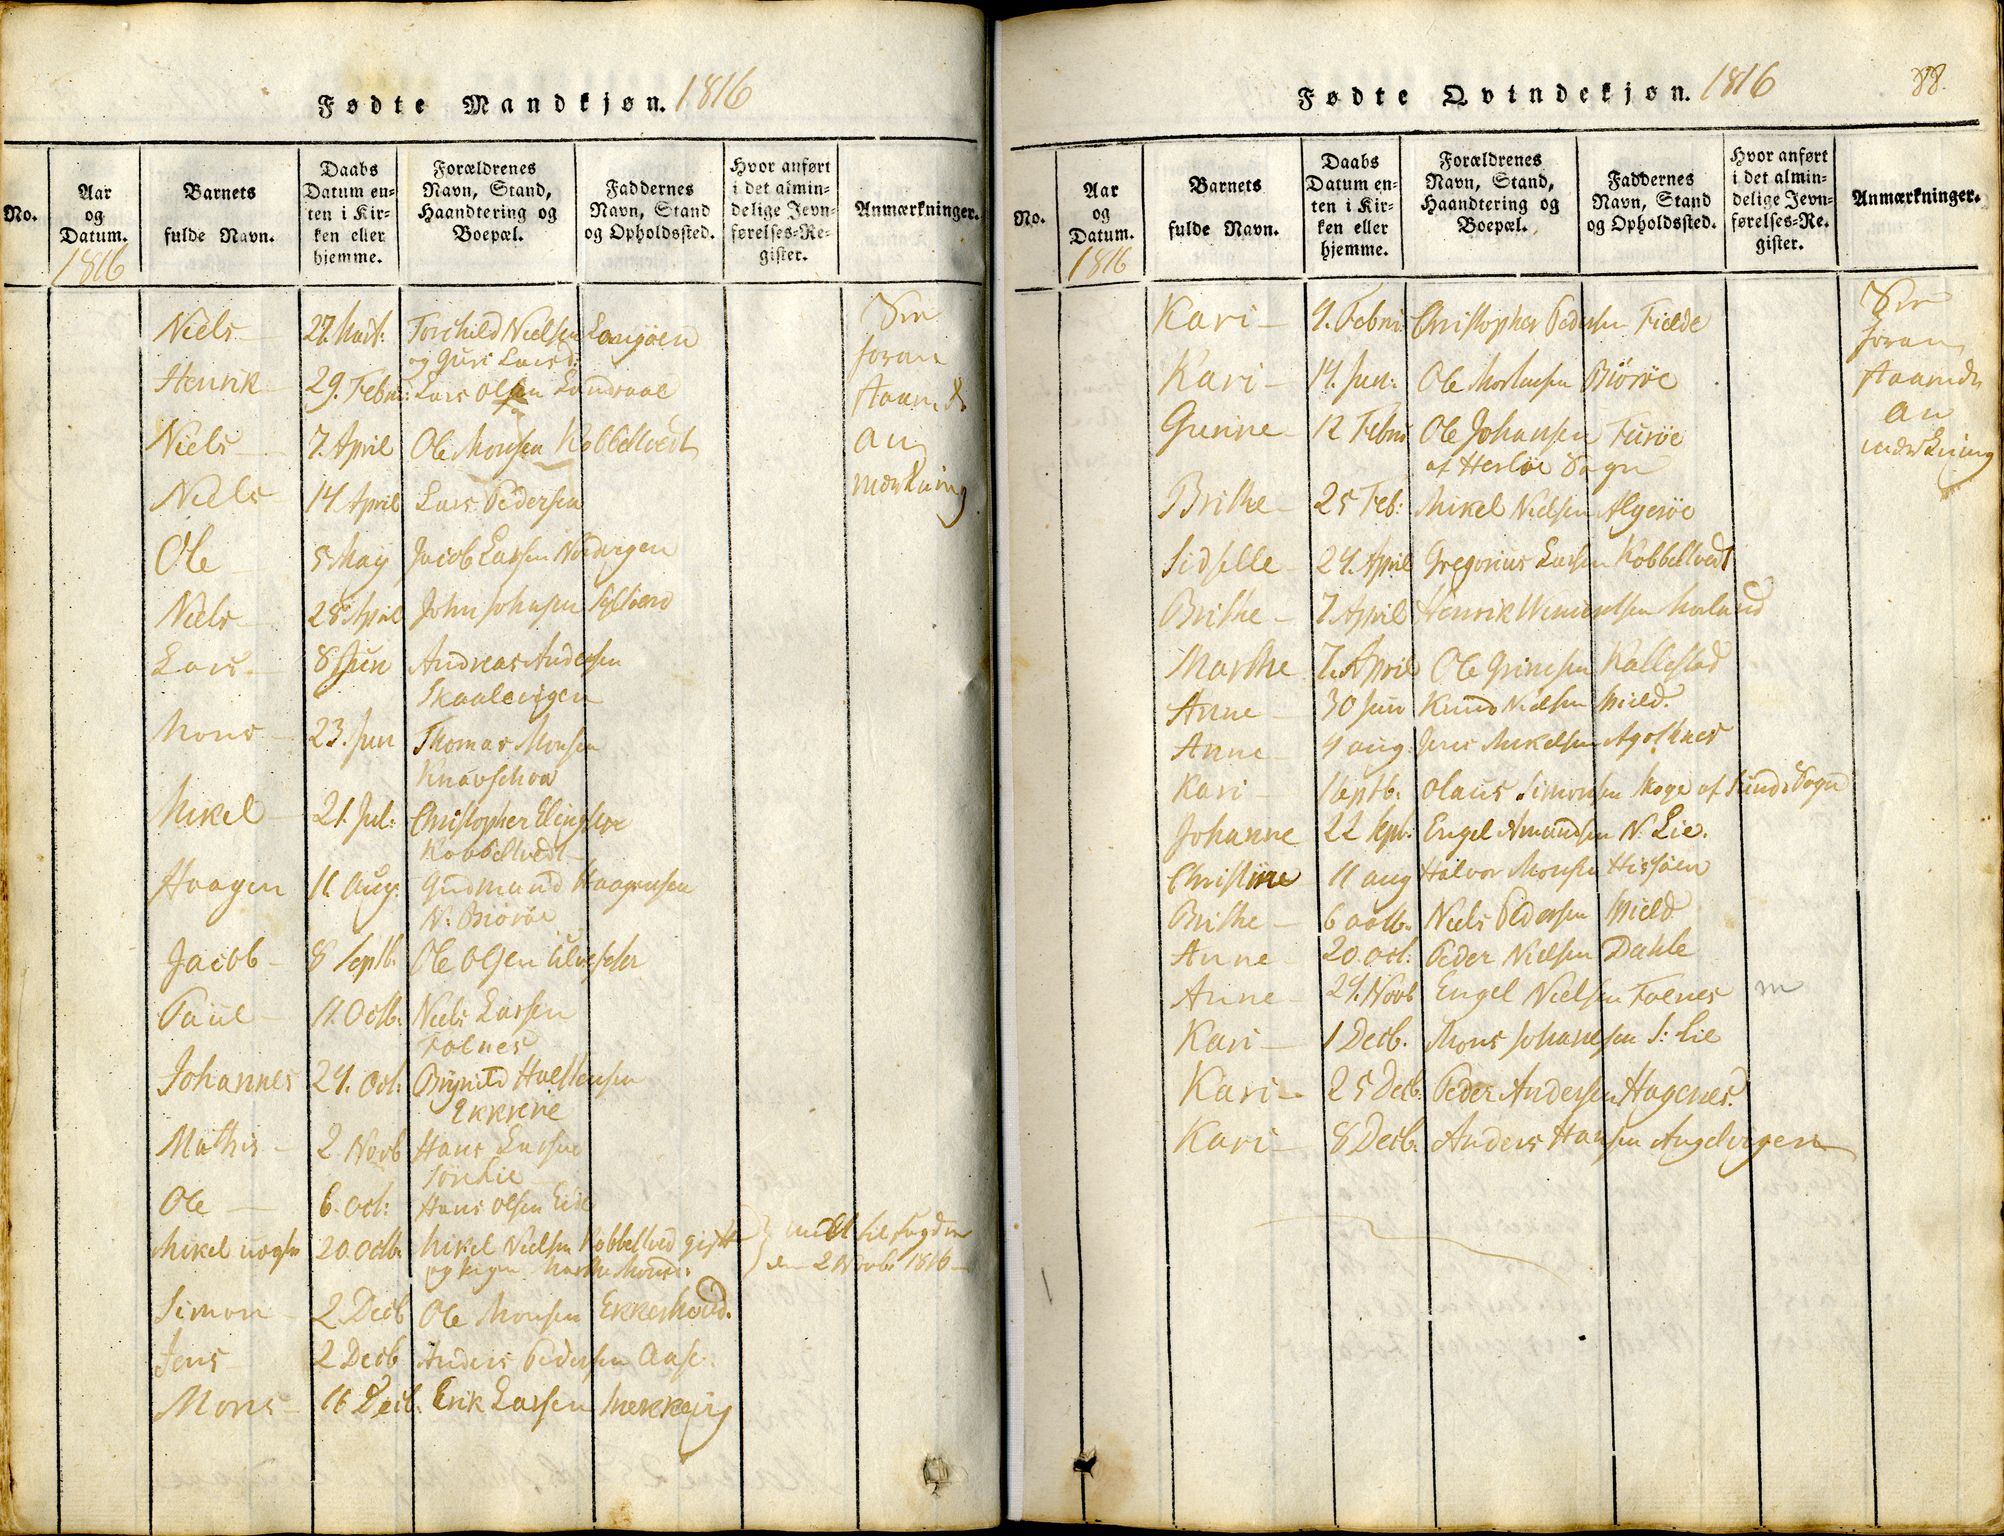 Fødte Mandkjøn. 1816
No.
Aar og Datum.
1816
Barnets fulde Navn.
Daabs Datum en=
ten i Kir=
ken eller
hjemme.
Forældrenes
Navn, Stand,
Haandtering og
Boepæl.
Faddernes
Navn, Stand
og Opholdssted.
Hvor anført
i det almin=
delige Jevn=
førelses=Re=
gister.
Anmærkninger.
Niels 27. Torchild Nielsen Langøen
og Guri Larsd:
Henrik 29. Febru: Lars Olsen
Niels 7. April Ole Monsen Kobbeltvedt
Niels 14 April Lars Pedersen
Ole 5 May Jacob Larsen
Niels 28 April John Johnsen
Lars 8 Jun Andreas Andersen
Skaalevigen
Mons 23. Jun Thomas Monsen
Mikel 21. Jul: Christopher
Kobbeltvedt
Haagen 11. Aug: Gudmund Haagensen
N: Biørøe
Jacob 8 Septb: Ole Olsen
Paul 11. Octb: Niels Larsen
Foenes
Johannes 24. Oct:
Ekkrene
Mathis 2 Novb Hans Larsen
Ole 6. Oct: Hans Olsen Eide
Mikel uægte 20. Octb. Mikel Nielsen Kobbeltved gift
og pigen Marthe Monsd:
den 2 Novbr 1816
Simon 2. Decb Ole Monsen Ekkerhovd.
Jens 2 Decb Anders Pedersen Aase.
Mons 16 Decb. Erik Larsen
foran
an
mærkning
Fødte Qvindekjøn. 1816
88.
No.
Aar og Datum.
1816
Barnets fulde Navn.
Daabs Datum en=
ten i Kir=
ken eller
hjemme.
Forældrenes
Navn, Stand,
Haandtering og
Boepæl.
Faddernes
Navn, Stand
og Opholdssted.
Hvor anført
i det almin=
delige Jevn=
førelses=Re=
gister.
Anmærkninger.
Kari 9. Febru: Christopher Pedersen Fielde
Kari 14. Jan: Ole Biørøe
Gunne 12 Febru Ole Johansen Turøe
af Herløe Sogn
Brithe 25 Feb: Mikel Nielsen Algerøe
Sidselle 24. April Gregorius Larsen Kobbeltvedt
Brithe 7 April Henrik
Marthe 7. April Ole Grimsen Kallestad
Anne 30 Jun Knud Nielsen Spield.
Anne 4 aug: Jens Mikelsen Agothnes
Kari 1 Septb. Olaus Simonsen Skoge af Sunds Sogn
Johanne 22 Sept. Engel Amundsen N. Lie.
Christine 11 aug Halvor Monsen Hissøen
Brithe 6 octb. Niels Pedersen Spield
Anne 20. oct: Peder Nielsen Dahle
Anne 24. Novb Engel Nielsen Foenes
Kari 1 Decb. Mons Johanesen S: Lie
Kari 25 Decb: Peder Andersen Hagenes.
Kari 8 Decb: Anders Hansen Angelvigen
foran
an
mærkning